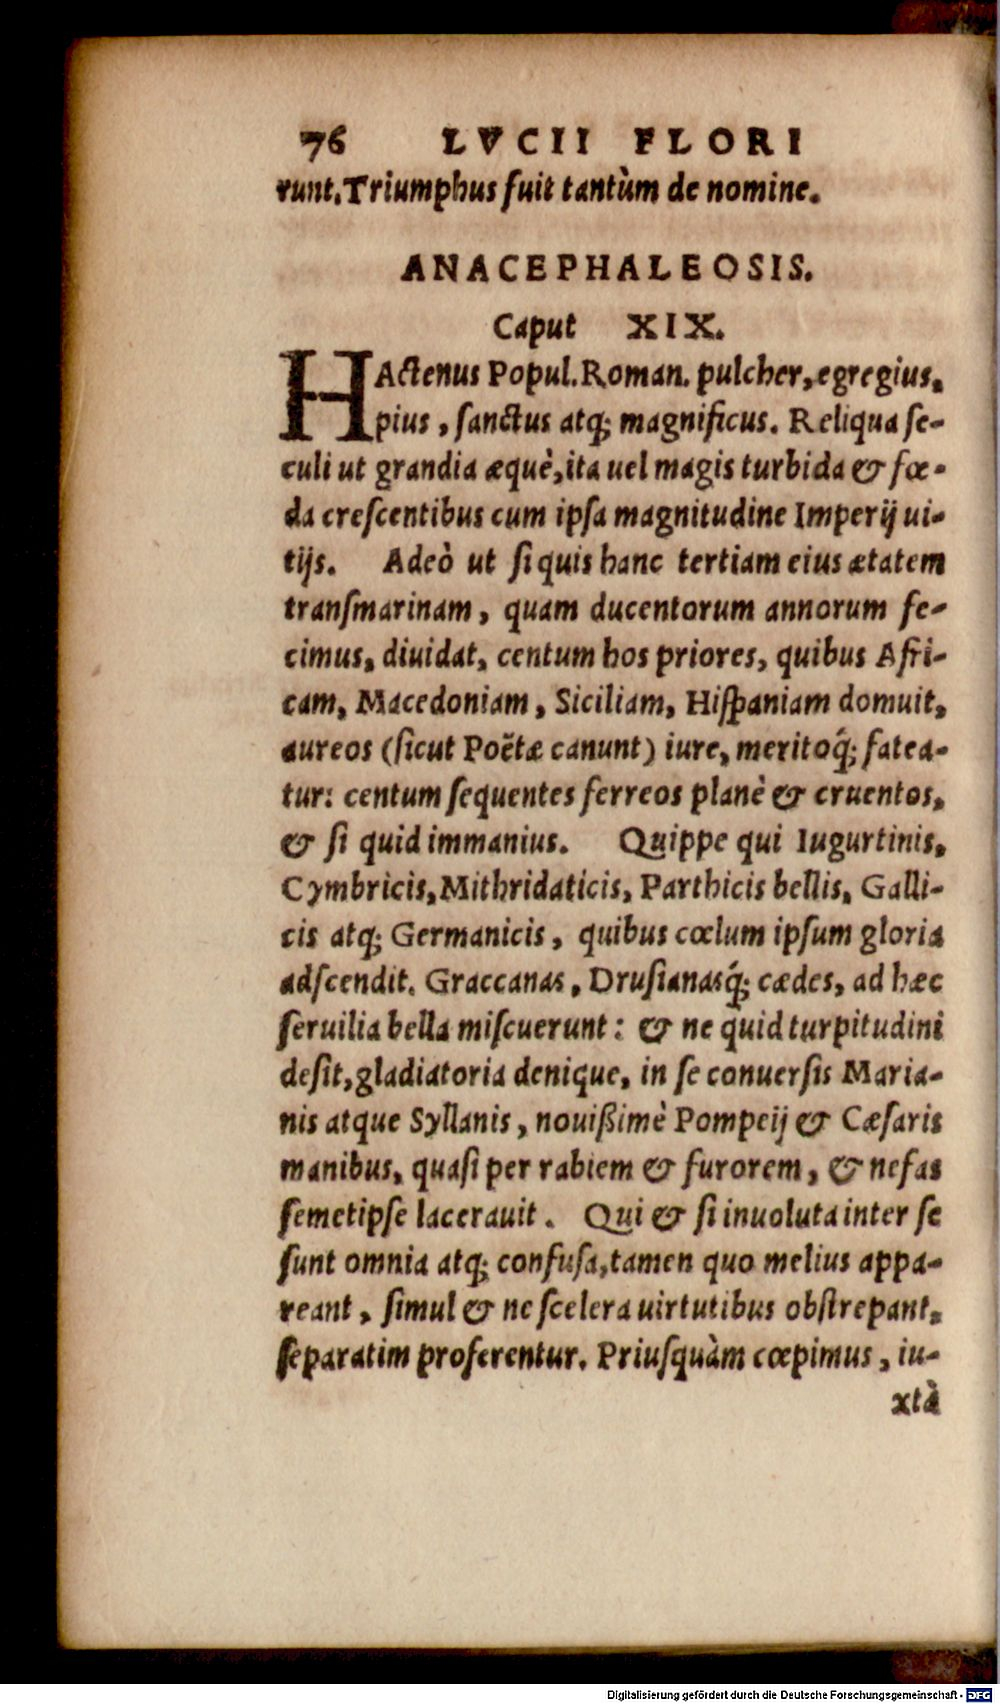 76 LVCII FLORI
runt. Triumphus fuit tantùm de nomine.
ANACEPHALEOSIS.
Caput XIX.
HActenus Popul. Roman. pulcher, egregius,
pius, ſanctus atq; magnificus. Reliqua ſe-
culi ut grandia æquè, ita uel magis turbida & fœ-
da creſcentibus cum ipſa magnitudine Imperij ui-
tijs. Adeò ut ſi quis hanc tertiam eius ætatem
tranſmarinam, quam ducentorum annorum fe-
cimus, diuidat, centum hos priores, quibus Afri-
cam, Macedoniam, Siciliam, Hiſpaniam domuit,
aureos (ſicut Poëtæ canunt) iure, meritoq́; fatea-
tur: centum ſequentes ferreos planè & cruentos,
& ſi quid immanius. Quippe qui Iugurtinis,
Cymbricis, Mithridaticis, Parthicis bellis, Galli-
cis atq; Germanicis, quibus cœlum ipſum gloria
adſcendit. Graccanas, Druſianasq́; cædes, ad hæc
ſeruilia bella miſcuerunt: & ne quid turpitudini
deſit, gladiatoria denique, in ſe conuerſis Maria-
nis atque Syllanis, nouißimè Pompeij & Cæſaris
manibus, quaſi per rabiem & furorem, & nefas
ſemetipſe lacerauit. Qui & ſi inuoluta inter ſe
ſunt omnia atq; confuſa, tamen quo melius appa-
reant, ſimul & ne ſcelera uirtutibus obſtrepant,
ſeparatim proferentur. Priuſquàm cœpimus, iu-
xtà
Digitalisierung gefördert durch die Deutsche Forschungsgemeinschaft - DFG